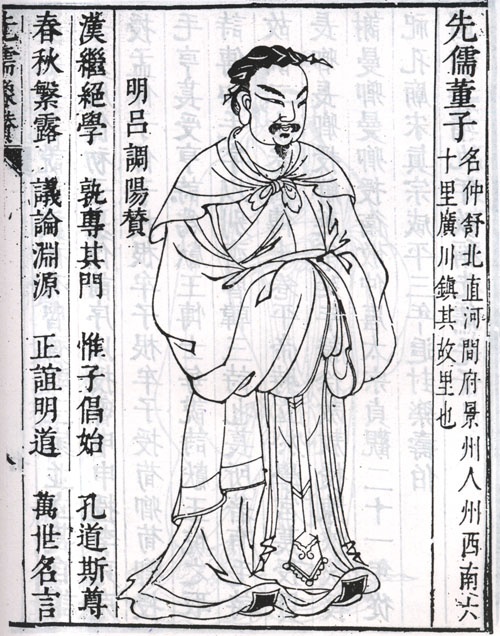 先儒董子
名仲舒北直河間府景州人州西南六
十里廣川鎮其故里也
明呂調陽贊
漢繼絕學 孰專其門 惟子倡始 孔道斯尊
春秋繁露 議論淵源 正誼明道 萬世名言
先儒像贊